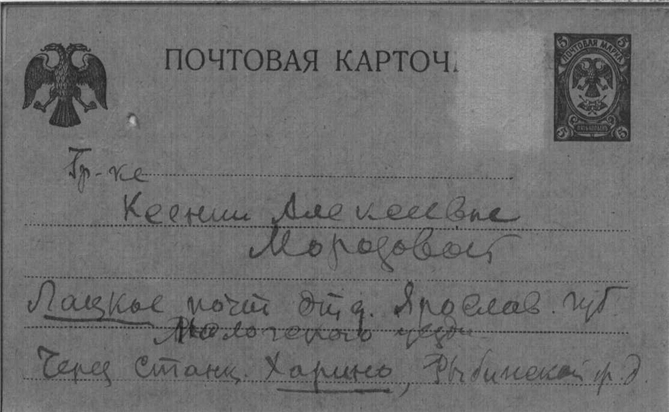 ПОЧТОВАЯ КАРТОЧ
ПОЧТОВАЯ МАРКА
5 5
Гр-ке
Ксении Алексеевне
Морозовой
Лацкое почт. отд. Ярослав. губ.
Мологского уезда
Через станц. Харино, Рыбинской ж. д.